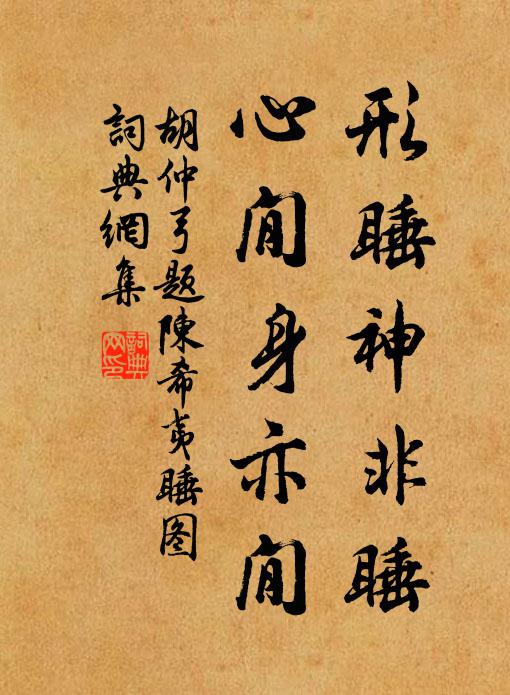 形睡神非睡
心閒身亦閒
胡仲弓題陳希夷睡图
詞典網集
詞典网印